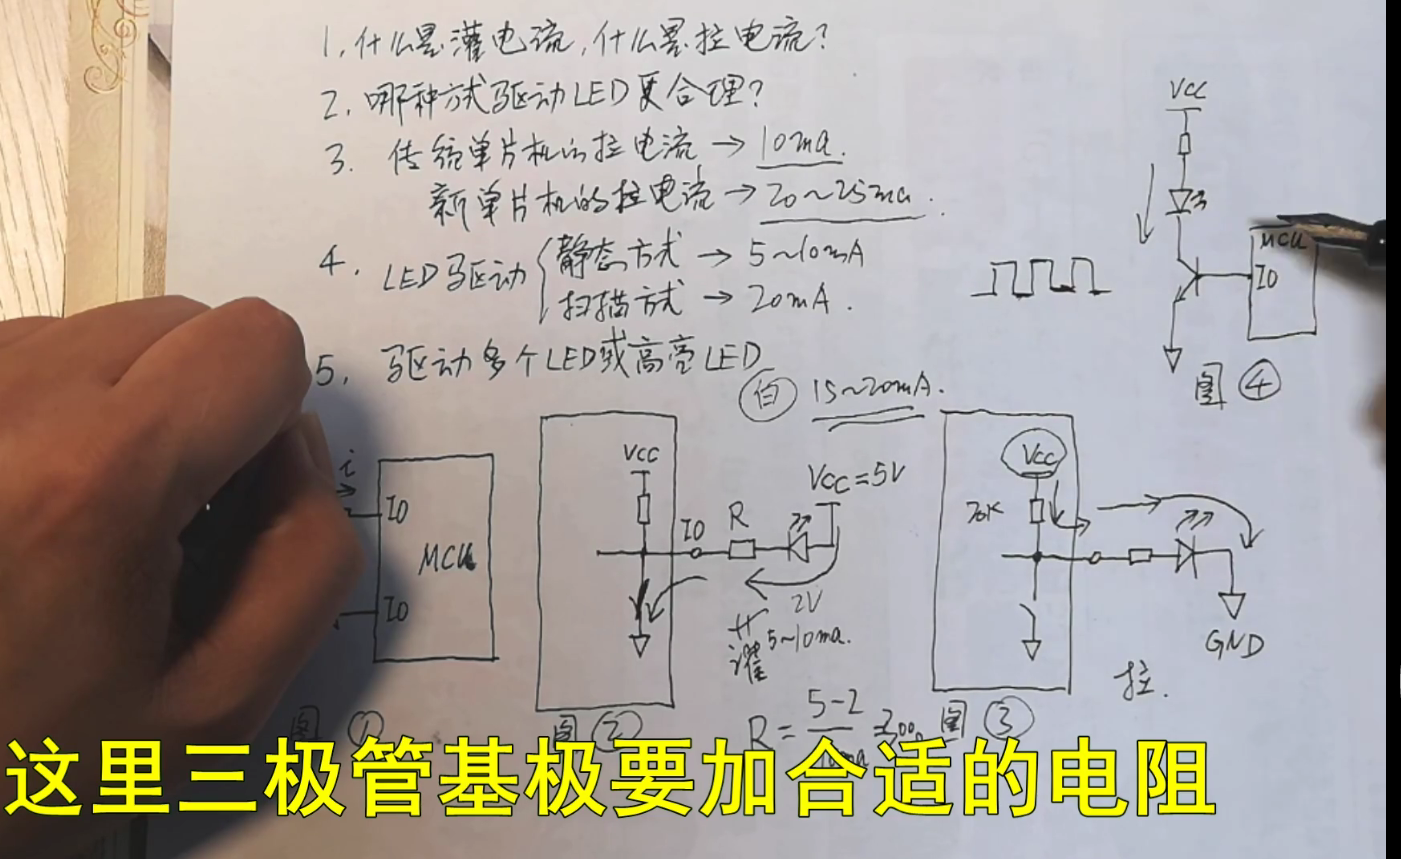 1, 什么是灌电流, 什么是拉电流?
2, 哪种方式驱动LED更合理?
3. 传统单片机的拉电流 → 10ma.
新单片机的拉电流 → 20~25ma.
4. LED驱动
静态方式 → 5~10mA
扫描方式 → 20mA.
5, 驱动多个LED或高亮LED
白 15~20mA.
VCC
MCU
IO
图④
i
IO
MCU
IO
图①
VCC
IO
R
VCC=5V
2V
5~10ma.
灌
图②
R=
5-2
VCC
20K
GND
拉.
图③
这里三极管基极要加合适的电阻